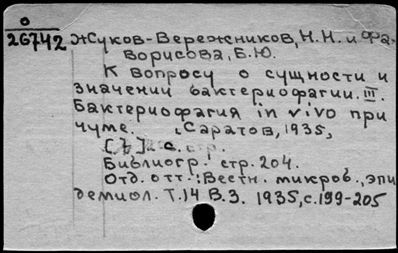 0
26742
Жуков-Вережников, Н.Н. и Фа-
ворисова, Б.Ю.
К вопросу о сущности и
значении бактериофагии. III.
Бактериофагия in vivo при
чуме. Саратов, 1935,
[7] с. стр.
Библиогр: стр. 204.
Отд. отт.: Вестн. микроб., эпи
демиол. Т.14 В.3. 1935, с.199-205